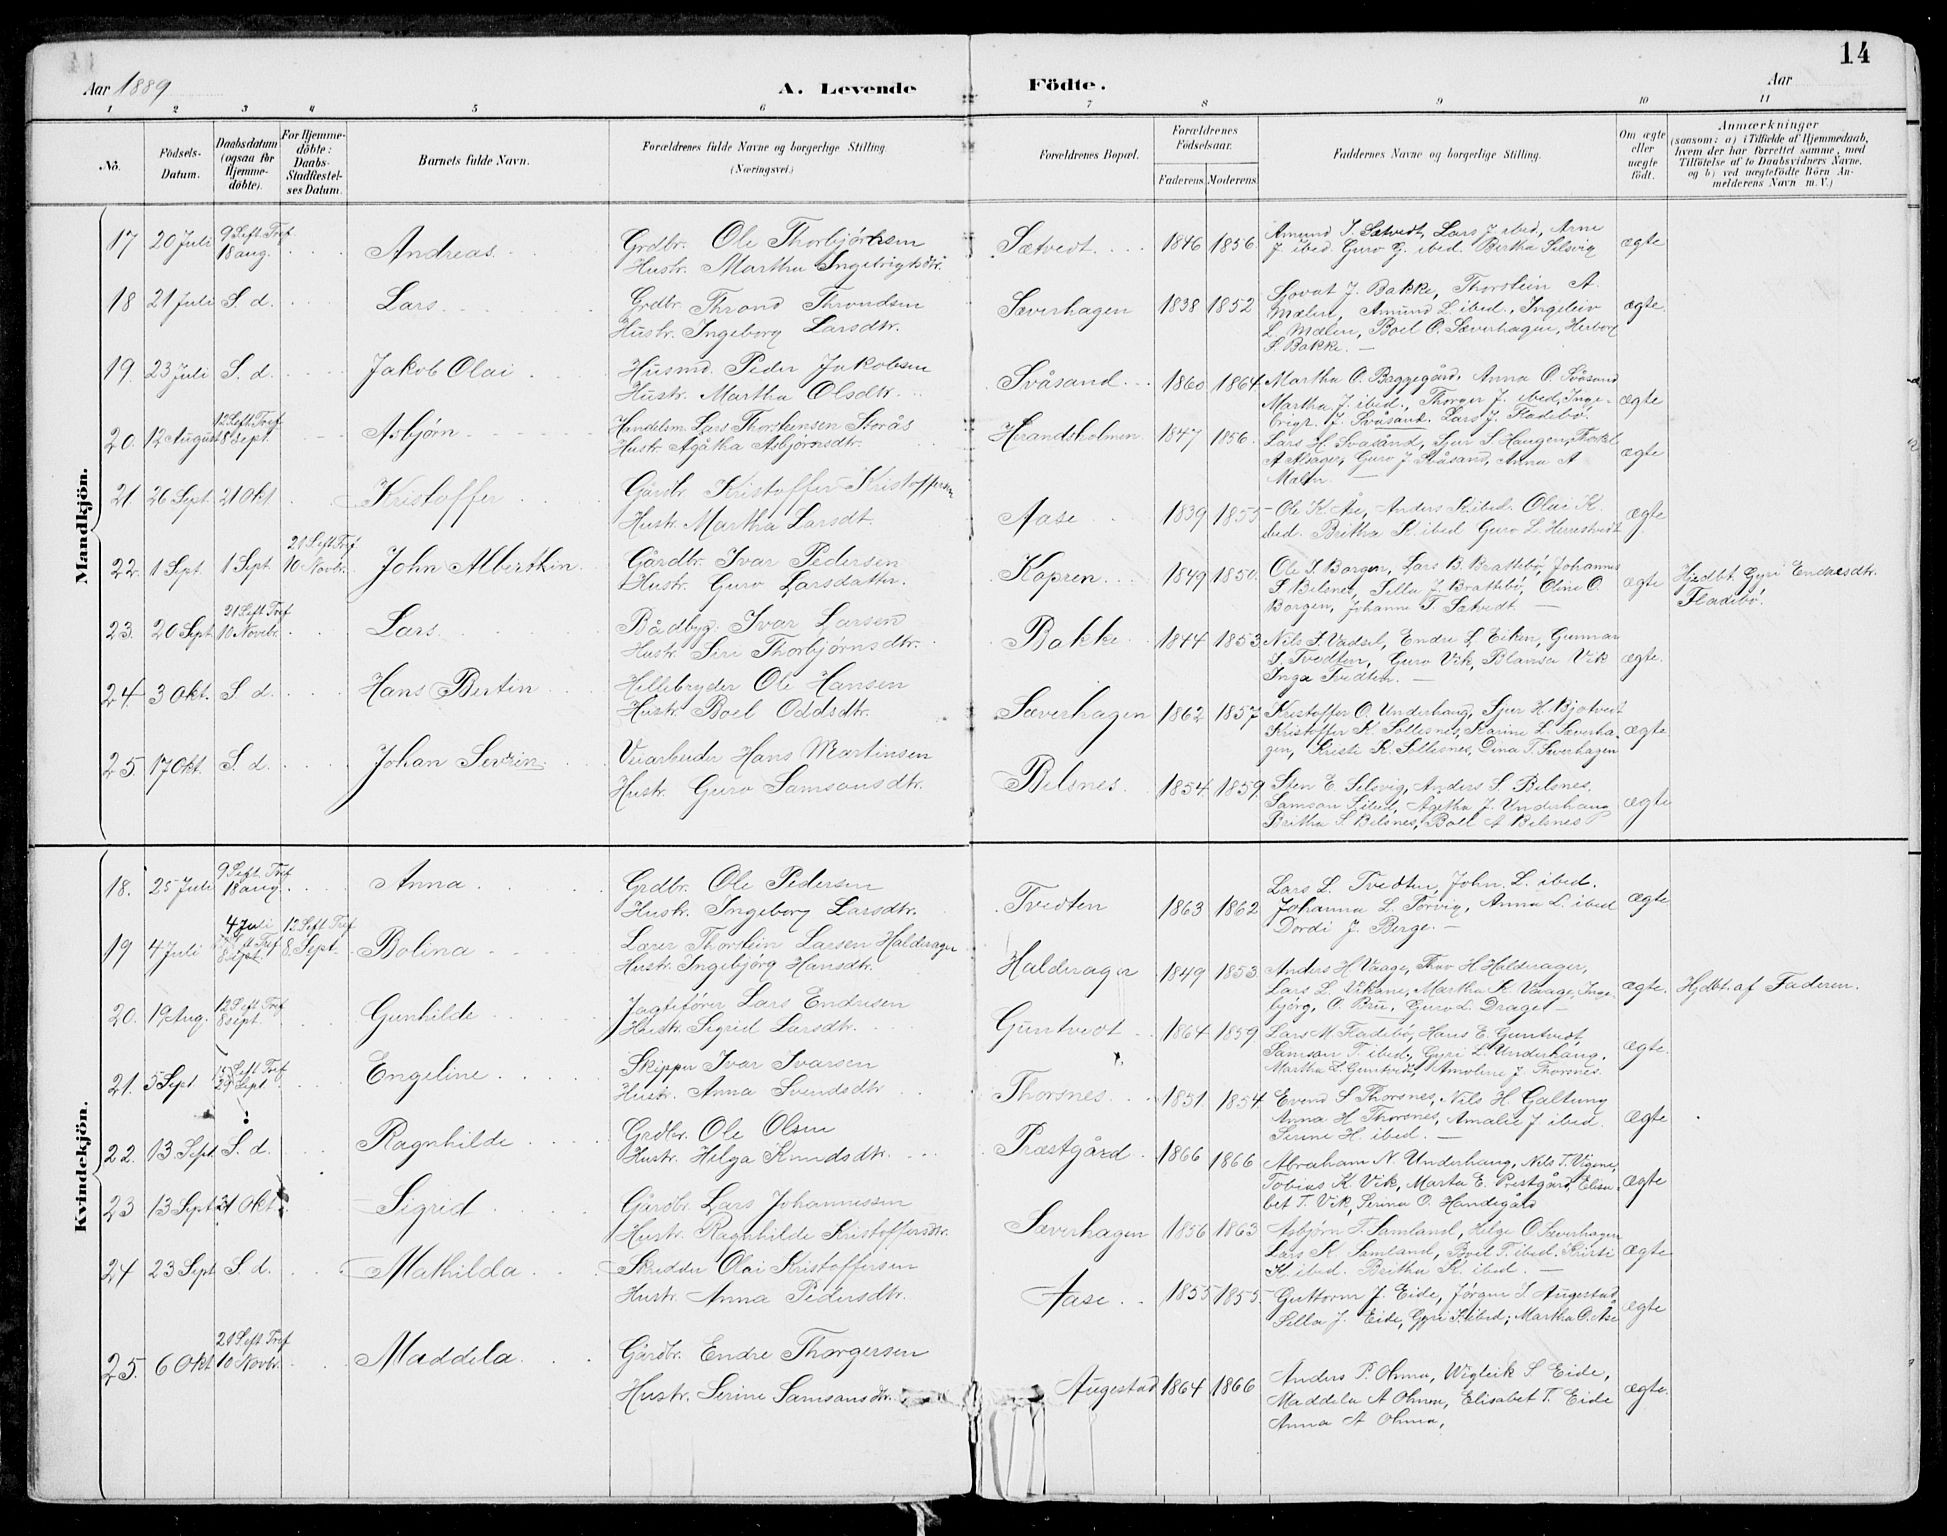 14
Aar 1889
A. Levende Födte.
Aar
1 2 3 4 5 6 7 8 9 10 11
No.
Födsels-Datum.
Daabsdatum (ogsaa for Hjemme-döbte).
For Hjemme-döbte: Daabs-Stadfæstel-ses Datum.
Barnets fulde Navn.
Forældrenes fulde Navne og borgerlige Stilling. (Næringsvei.)
Forældrenes Bopæl.
Forældrenes Födselsaar.
Faderens. Moderens.
Faddernes Navne og borgerlige Stilling.
Om ægte eller uægte födt.
Anmærkninger
(saasom: a) i Tilfælde af Hjemmedaab,
hvem der har forrettet samme, med
Tilföielse af to Daabsvidners Navne.
og b) ved uægtefödte Börn An-
melderens Navn m. V.)
Mandkjön.
17 20 Juli 9 S. eft. Tref 18 aug. Andreas Grdbr. Ole Thorbjörnsen
Hustr. Martha Ingebrigtsdtr. Sætvedt 1846 1856 Amund T. Sætvedt, Lars J ibid, Arne
J. ibid. Guro G. ibid. Bertha Selsvig ægte
18 21 Juli S. d. Lars Grdbr. Thrond Throndsen
Hustr. Ingeborg Larsdtr. Sæverhagen 1838 1852 Sjovat J. Bakke, Thorstein A.
Mælen, Amund L. ibid., Ingeleiv
L. Mælen, Boel O. Sæverhagen, Herborg
S. Bakke. — ægte.
19. 23 Juli S. d. Jakob Olai Husmd. Peder Jakobsen
Hustr. Martha Olsdtr. Svåsand 1860 1864 Martha O. Baggegård, Anna O. Svåsand
Martha J. ibid., Thorger J. ibid, Inge-
brigt J. Svåsand. Lars J. Fladebö. ægte
20. 12 August 12 S. eft. Tref 8 sept. Asbjörn Handelsm. Lars Thorsteinsen Storås
Hustr. Agåtha Asbjörnsdtr. Herandsholmen 1847 1856. Lars H. Svasånd, Sjur S. Haugen, Thorkl.
A Alsager, Guro J Svåsand, Anna A
Mælen. — ægte
21 26 Sept. 21 Okt Kristoffer Gårdbr. Kristoffer Kristoffersen
Hustr. Martha Larsdt. Aase 1839 1855 Ole K Åse, Anders K ibid. Olai K.
ibid. Britha K ibid Guro L. Herrestvedt ægte
22. 1 Sept. 1 Sept. 21 S. eft. Tref 10 Novbr. John Albertkin Gårdbr. Ivar Pedersen
Hustr. Guro Larsdatter. Kapren 1849 1850. Ole T. Borgen, Lars B. Brattebö, Johannes
S. Bilsnes, Silla J. Brattebö, Oline O.
Borgen, Johanne T. Sætvedt — ægte Hjedbt. Gyri Endresdtr.
Fladebö.
23. 20 Sept 21 S. eft. Tref 10 Novbr. Lars Bådbyg. Ivar Larsen
Hustr. Siri Thorbjörnsdtr. Bakke 1844 1853 Nils S. Vadsel, Endre L. Eiken, Gunnar
S. Tvedten, Guro Vik, Blansa Vik
Inga Tvedten. — ægte.
24 3 Okt. S. d. Hans Bertin Hillebryder Ole Hansen
Hustr. Boel Oddsdtr. Sæverhagen 1862 1857 Kristoffer O. Underhaug, Sjur H. Bjotvedt
Kristoffer K. Sollesnes, Karine L. Sæverha-
gen, Kristi K. Sollesnes, Dina T. Sæverhagen ægte
25. 17 Okt. S. d. Johan Sevrin Veiarbeider Hans Martinsen
Hustr. Guro Samsonsdtr. Bilsnes. 1854 1859 Sten E. Selsvig, Anders S. Bilsnes,
Samson S. ibid, Agetha J. Underhaug
Britha S. Bilsnes, Boel A Bilsnes ægte
Kvindekjön.
18. 25 Juli 9 S. eft. Tref 18 aug. Anna Grdbr. Ole Pedersen
Hustr. Ingeborg Larsdtr. Tvedten 1863 1862 Lars L. Tvedten, John. L. ibid.
Johanna L. Torvig, Anna L. ibid
Dordi J. Berge. — ægte
19 4 Juli 4 Juli 8 sept. 12 S. eft Tref 8. Sept. Bolina Lærer Thorstein Larsen Halderager
Hustr. Ingebjörg Hansdtr. Halderager 1849 1853 Anders H Vaage, Thov H Halderager,
Lars L. Vikane, Martha K Vaage, Inge-
björg, O. Bru, Guro L. Draget — ægte. Hjdbt. af Faderen.
20. 19 Aug. 12 S. eft. Tref 8 sept. Gunhilde Jagtefører Lars Endresen
Hustr. Sigrid Larsdtr. Guntvedt 1864 1859 Lars M. Fladebö, Hans E. Guntvedt,
Samson T. ibid, Gyri L. Underhaug.
Martha L. Guntvedt, Amoline J. Thorsnes. ægte
21. 5 Sept 15 S. eft Tref 29 Sept Engeline Skipper Ivar Ivarsen
Hustr. Anna Svendsdtr Thorsnes 1851 1854 Evend S Thorsnes, Nils H. Galtung
Anna H Thorsnes, Amalie J ibid.
Serine H. ibid. — ægte
22. 13 Sept S. d. Ragnhilde Grdbr. Ole Olsen
Hustr. Helga Knudsdtr. Præstgård 1866 1866 Abraham N. Underhaug, Nils T. Vigene,
Tobias K Vik, Marta E. Prestgård, Elisa-
bet T. Vik, Serina O. Handegård ægte
23 13 Sept 21 Okt Sigrid Gårdbr. Lars Johannessen
Hustr. Ragnhilde Kristoffersdtr. Sæverhagen 1856 1863 Asbjörn T. Samland, Helge O Sæverhagen
Lars K. Samland, Boel T. ibid, Kristi
K. ibid. Britha K. ibid. — ægte
24 23 Sept S. d. Mathilda Skrædder Olai Kristoffersen
Hustr. Anna Pedersdtr. Aase 1855 1855 Guttorm J. Eide, Jörgen L Augestad
Silla J. Eide, Gyri S. ibid; Martha O. Åse ægte
25. 6 Okt 21 S. eft. Tref 10 Novbr. Maddela Gårdbr. Endre Thorgersen
Hustr. Serine Samsonsdtr. Augestad 1864 1866 Anders P. Ohma, Wigleik S. Eide,
Maddela A Ohma, Elisabet T. Eide
Anna A Ohma, ægte.